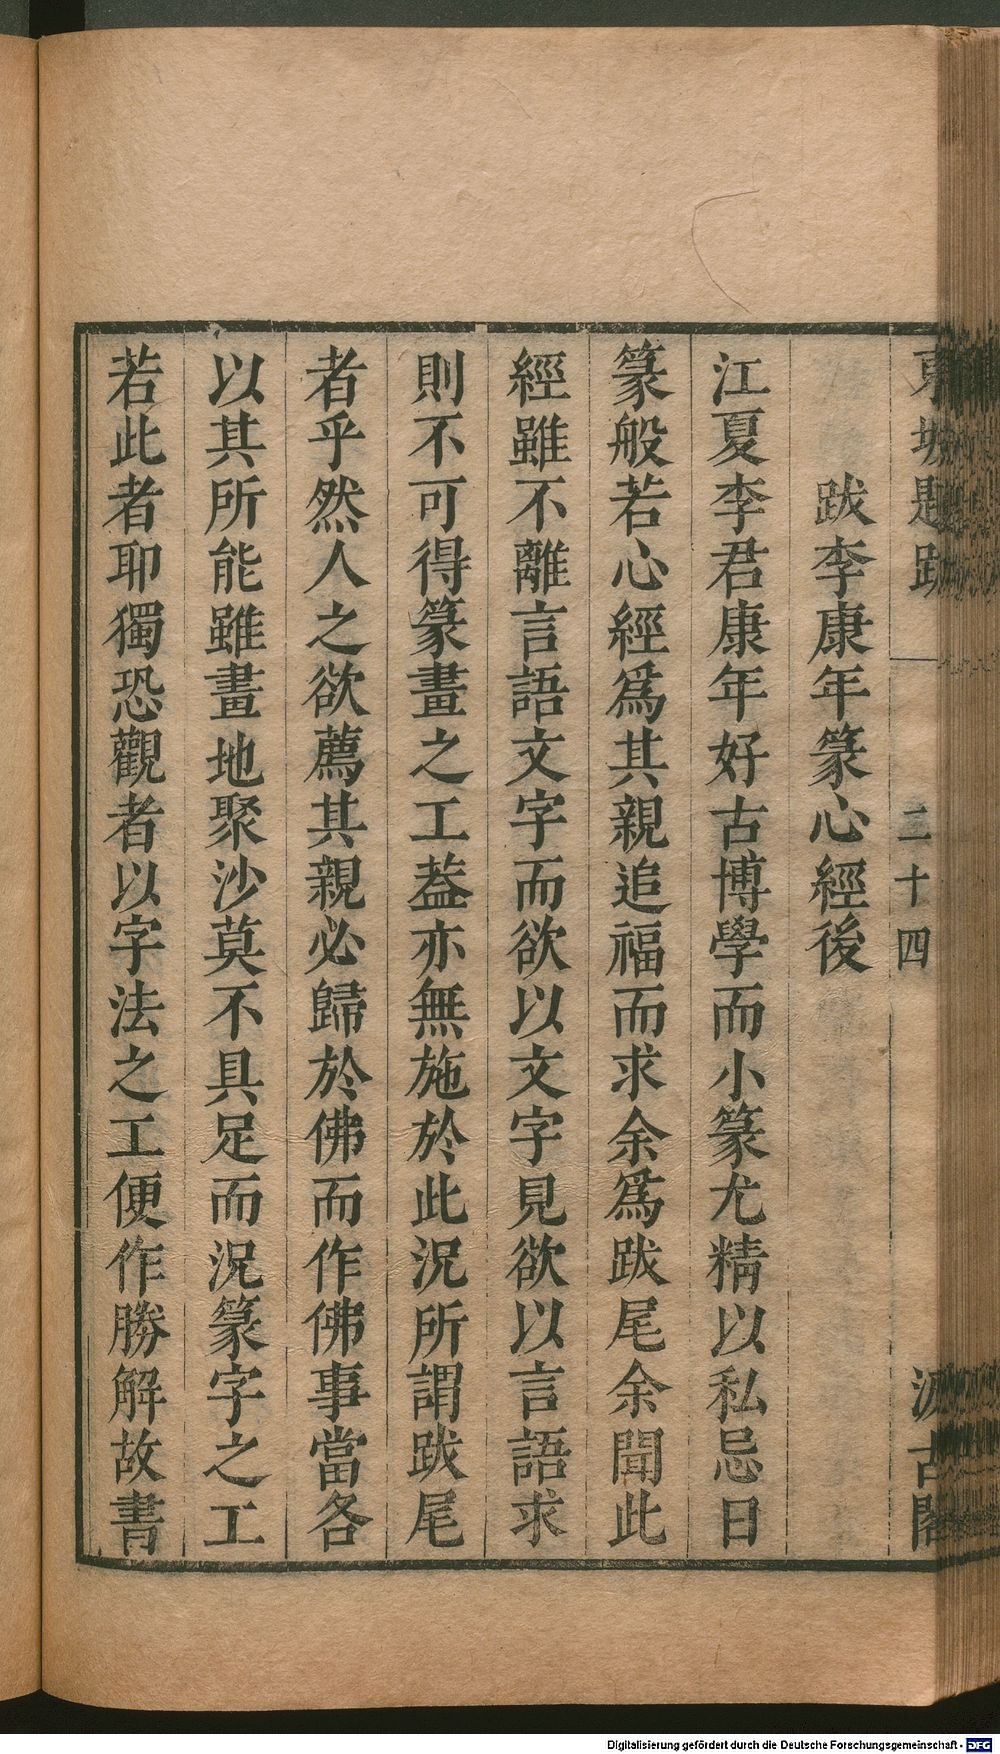 東坡題跋 二十四 汲古閣
跋李康年篆心經後
江夏李君康年好古博學而小篆尤精以私忌日
篆般若心經爲其親追福而求余爲跋尾余聞此
經雖不離言語文字而欲以文字見欲以言語求
則不可得篆畫之工葢亦無施於此況所謂跋尾
者乎然人之欲薦其親必歸於佛而作佛事當各
以其所能雖畫地聚沙莫不具足而況篆字之工
若此者耶獨恐觀者以字法之工便作勝解故書
Digitalisierung gefördert durch die Deutsche Forschungsgemeinschaft - DFG